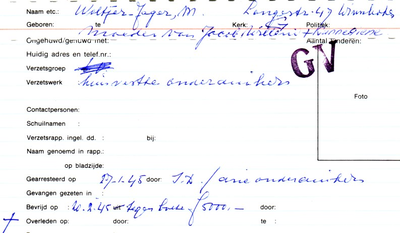 Naam etc.: Wilpper-Jager, M. Langestr 47 Winschoten
Geboren: te Kerk: Politiek:
Moeder van Jacob, Willem +
Ongehuwd/gehuwd met: Aantal kinderen:
Huidig adres en telef.nr.:
GV
Verzetsgroep
Verzetswerk huisvestte onderduikers
Foto
Contactpersonen:
Schuilnaam :
Verzetsrapp. ingel. dd. : bij:
Naam genoemd in rapp.:
op bladzijde:
Gearresteerd op 27-1-45 door: S.D. / drie onderduikers
Gevangen gezeten in :
Bevrijd op : 20-2-45 uit tegen boete f 5000,- door:
+ Overleden op: door: te :